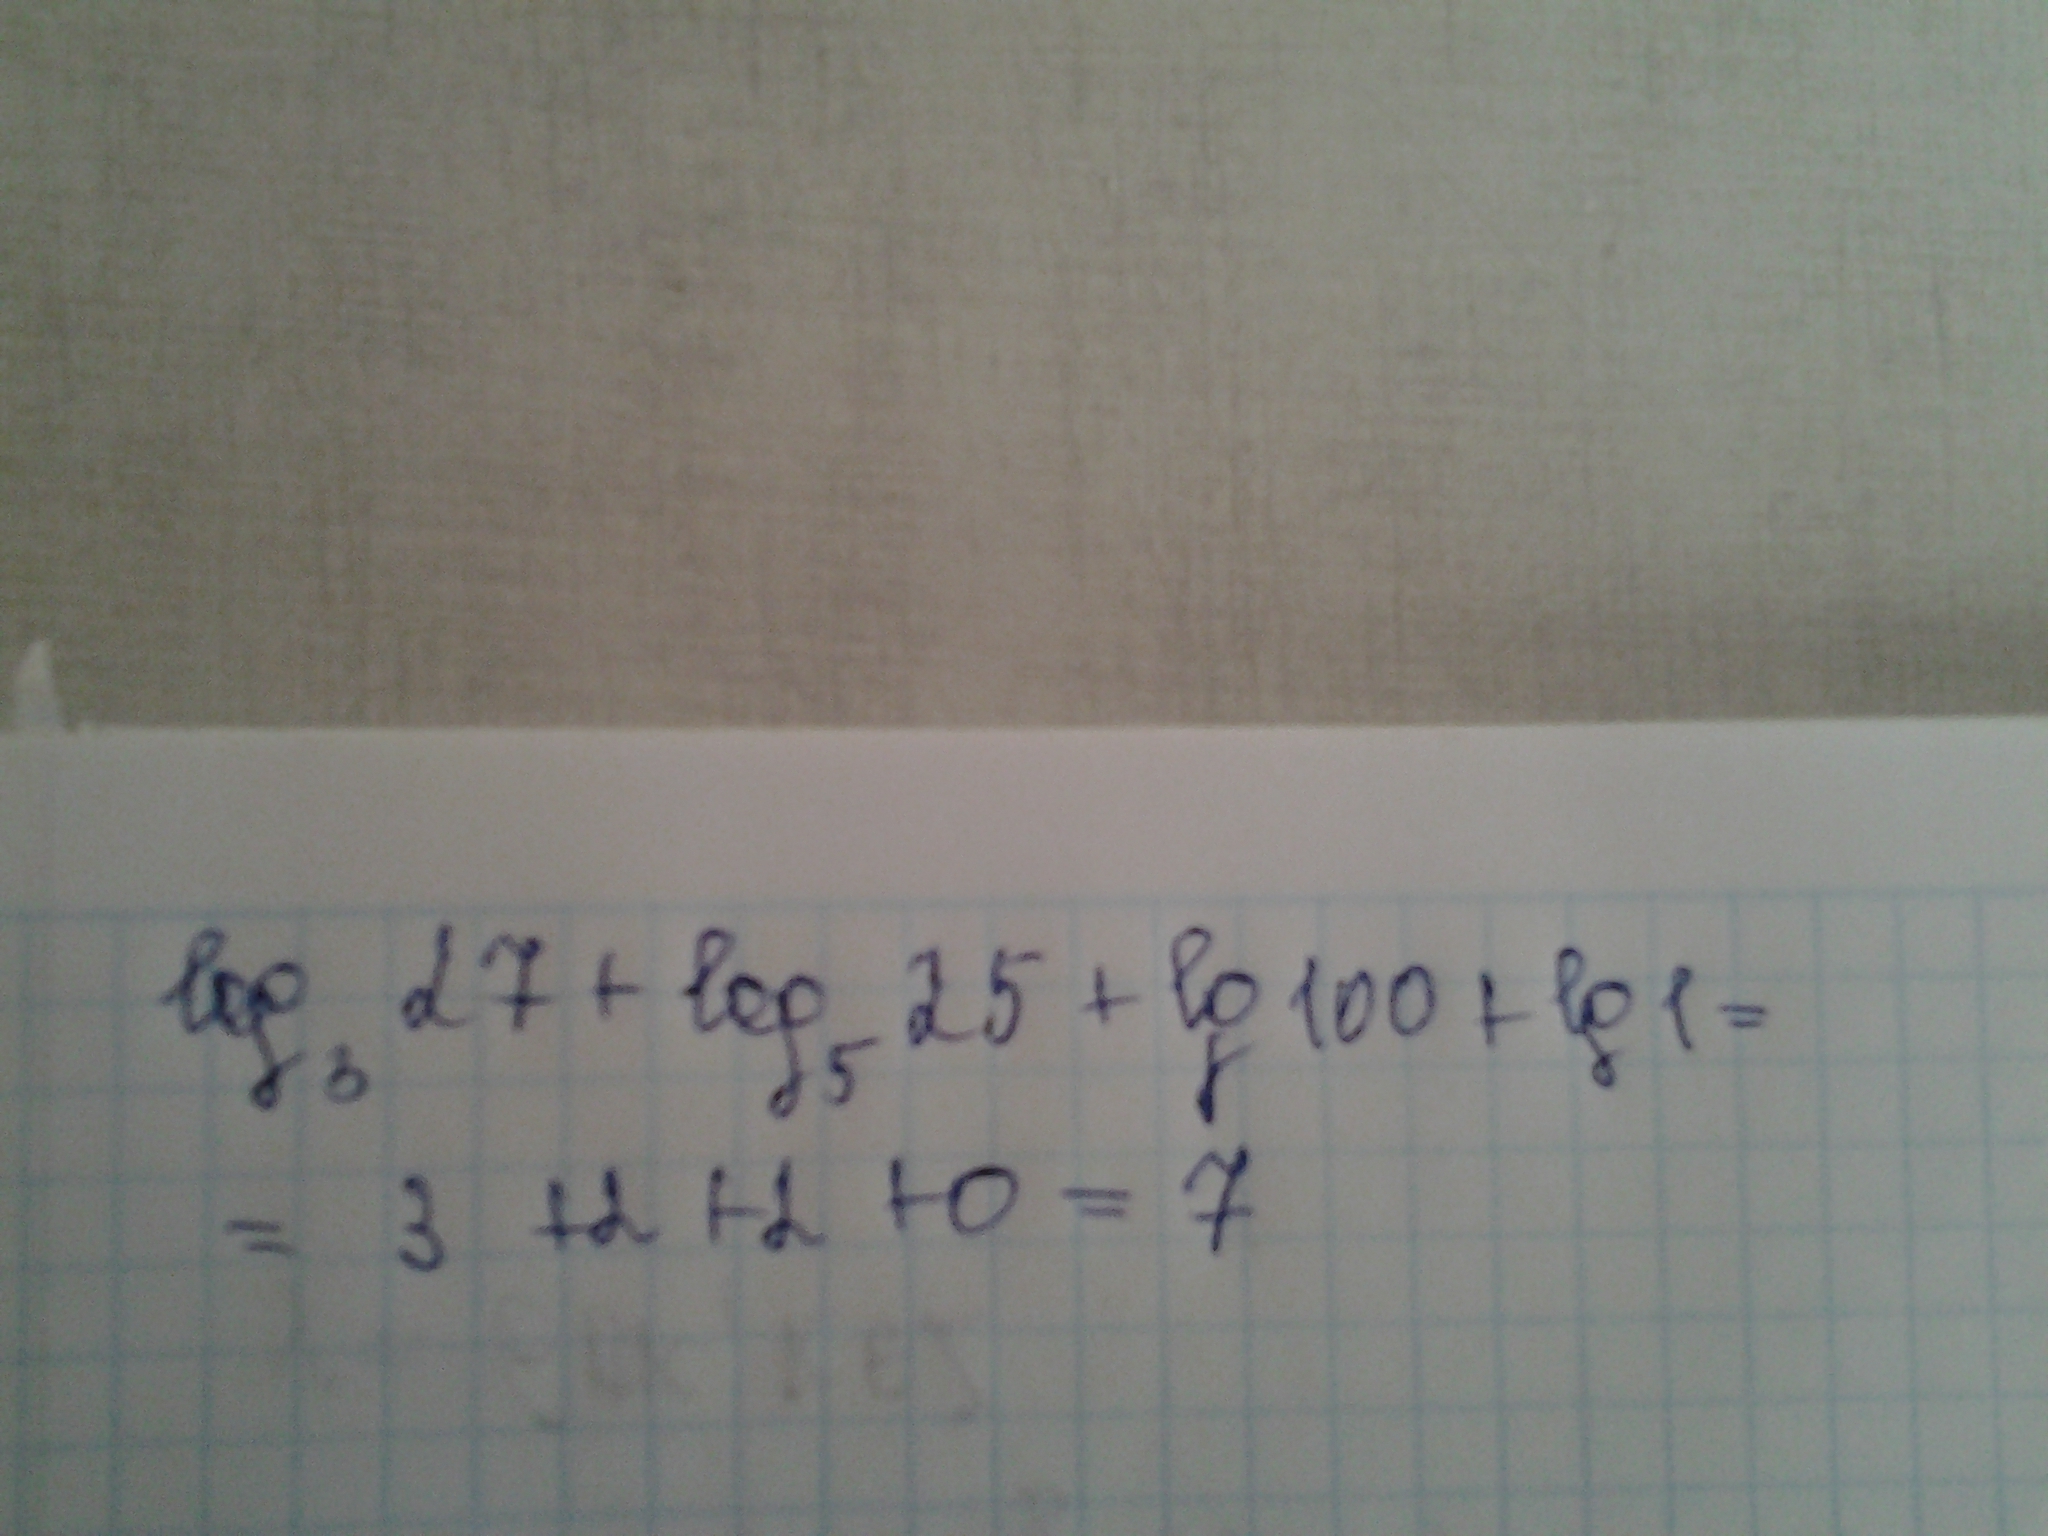 log₃ 27 + log₅ 25 + lg 100 + lg 1 =
= 3 + 2 + 2 + 0 = 7